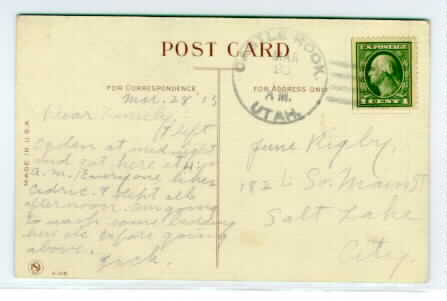 POST CARD
CASTLE ROCK,
MAR
A.M.
UTAH.
U.S. POSTAGE
1 CENT 1
FOR CORRESPONDENCE
FOR ADDRESS ONLY
MADE IN U.S.A.
Mar. 28 13
Dear
I left
Ogden at midnight
and got here at 4
a.m. Everyone likes
Cedric. I slept all
afternoon. Am going
to wash some bedding
here etc before going
above.
Jack.
June Rigby.
1824 So. Main St
Salt Lake
City.